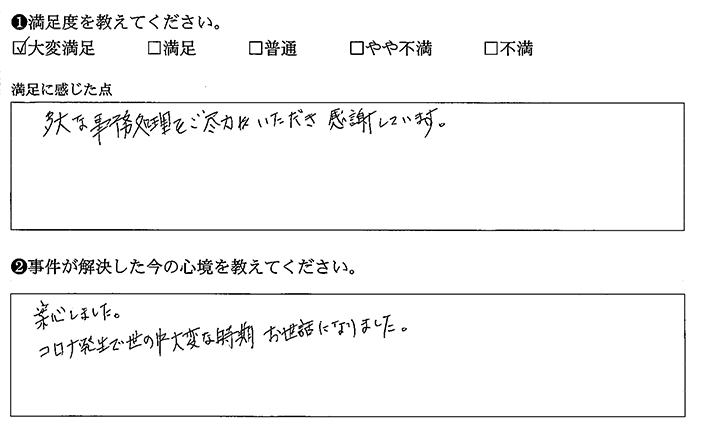 ❶満足度を教えてください。
☑大変満足 □満足 □普通 □やや不満 □不満
満足に感じた点
多大な事務処理をご尽力いただき 感謝しています。
❷事件が解決した今の心境を教えてください。
安心しました。
コロナ発生で世の中大変な時期 お世話になりました。